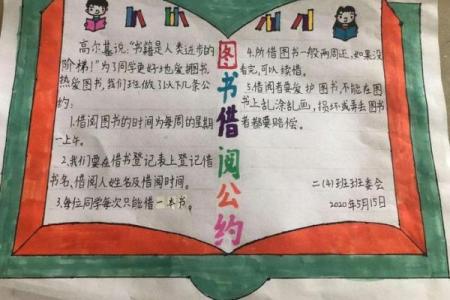 图书借阅公约
高尔基说:“书籍是人类进步的
阶梯!”为了同学更好地爱护书,
热爱图书,我们班做了以下几条公
约:
1.借阅图书的时间为每周的星期
一上午。
2.我们要在借书登记表上登记借
书名、借阅人姓名及借阅时间。
3.每位同学每次只能借一本书。
4.所借图书一般两周还,如果没
看完,可以续借。
5.借阅者要爱护图书,不能在图
书上乱涂乱画,损坏或弄丢图书
者都要赔偿。
二(4)班班委会
2020年5月15日